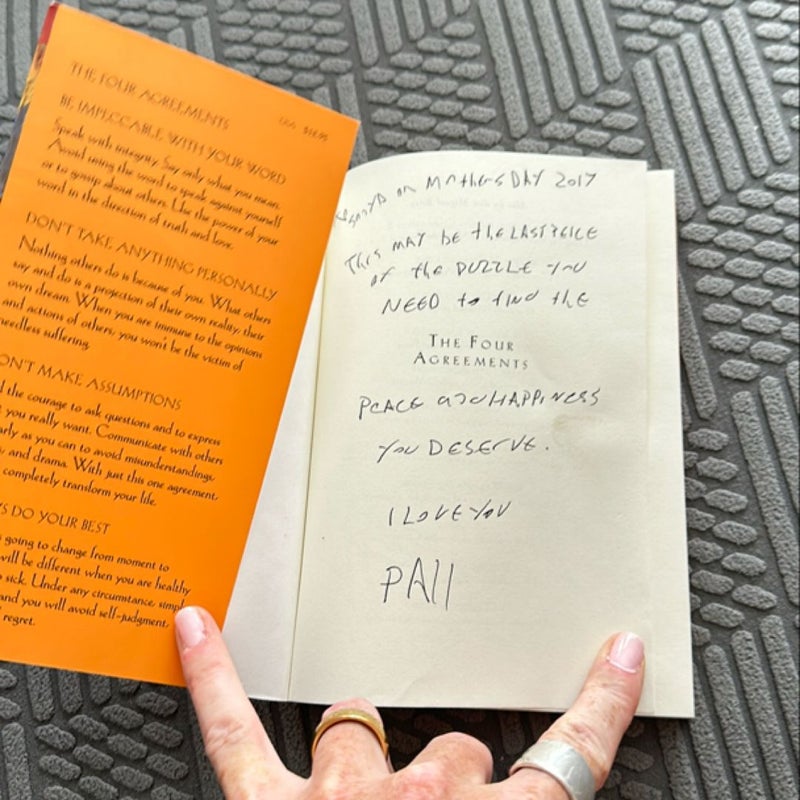 THE FOUR AGREEMENTS
USA $14.95
BE IMPECCABLE WITH YOUR WORD
Speak with integrity. Say only what you mean.
Avoid using the word to speak against yourself
or to gossip about others. Use the power of your
word in the direction of truth and love.
DON'T TAKE ANYTHING PERSONALLY
Nothing others do is because of you. What others
say and do is a projection of their own reality, their
own dream. When you are immune to the opinions
and actions of others, you won't be the victim of
needless suffering.
ON'T MAKE ASSUMPTIONS
the courage to ask questions and to express
you really want. Communicate with others
arly as you can to avoid misunderstandings,
and drama. With just this one agreement,
completely transform your life.
S DO YOUR BEST
going to change from moment to
will be different when you are healthy
sick. Under any circumstance, simpl
and you will avoid self-judgment,
regret.
on MOTHERS DAY 2017
THIS MAY BE the LAST PEICE
of the PUZZLE YOU
NEED to FIND the
THE FOUR
AGREEMENTS
PEACE AND HAPPINESS
YOU DESERVE.
I LOVE YOU
PAll